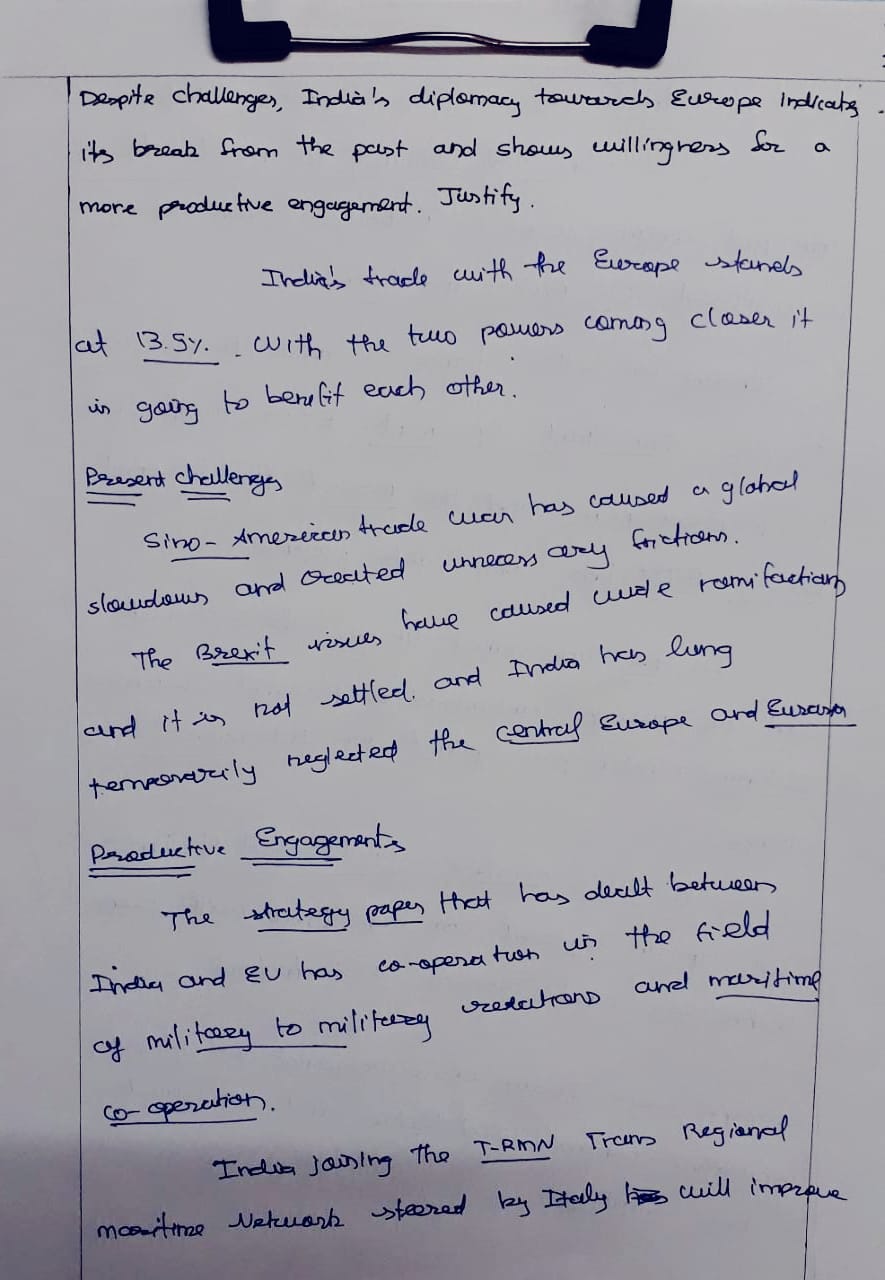 Despite challenges, India's diplomacy towards Europe indicates
its break from the past and shows willingness for a
more productive engagement. Justify.
India's trade with the Europe stands
at 13.5%. With the two powers coming closer it
is going to benefit each other.
Present challenges
Sino-American trade war has caused a global
slowdown and created unnecessary frictions.
The Brexit issues have caused wide ramifactions
and it is not settled. and India has lung
temporarily neglected the central Europe and Eurasia
Productive Engagements
The strategy paper that has dealt between
India and EU has co-operation in the field
of military to military relations and maritime
co-operation.
India joining the T-RMN Trans Regional
maritime Network steered by Italy will improve